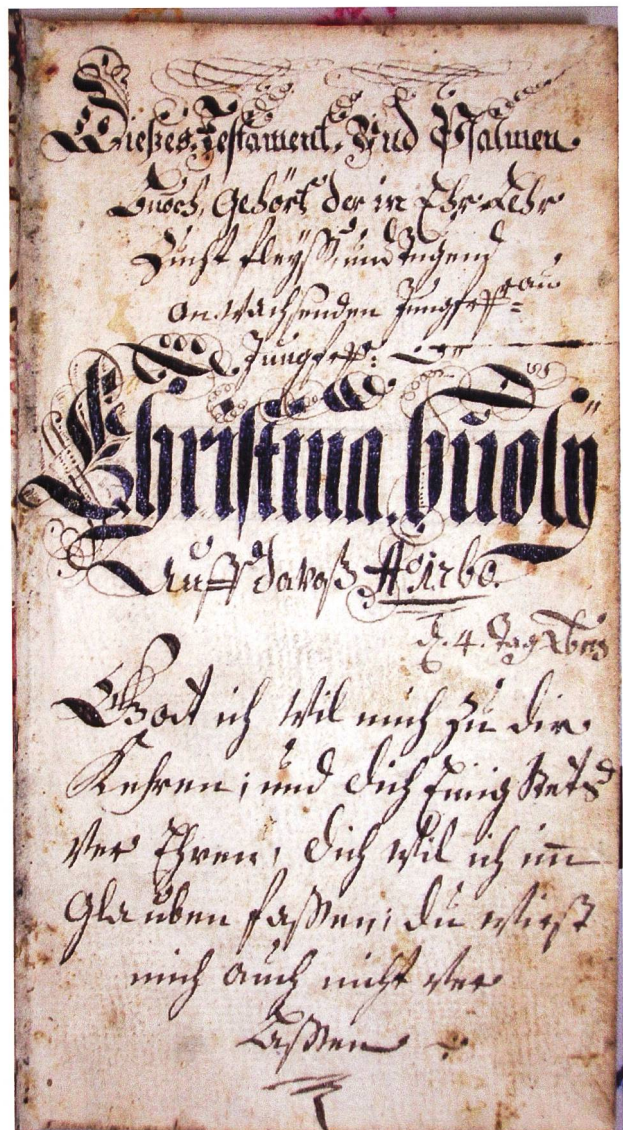 Dießes Testament. Und Psalmen
buoch, Gehört der in Ehr Lehr
Zucht fleÿß und Tugend
an wachsenden Jungfrau
Jungfr:
Christina. buolÿ
Auff davoß Aº 1760.
d. 4. Tag
Gott ich Wil mich zu dir
Kehren; und dich Einig Stets
Ver Ehren; dich Wil ich im
Glauben faßen; du Wirst
mich auch nicht Ver
Laßen